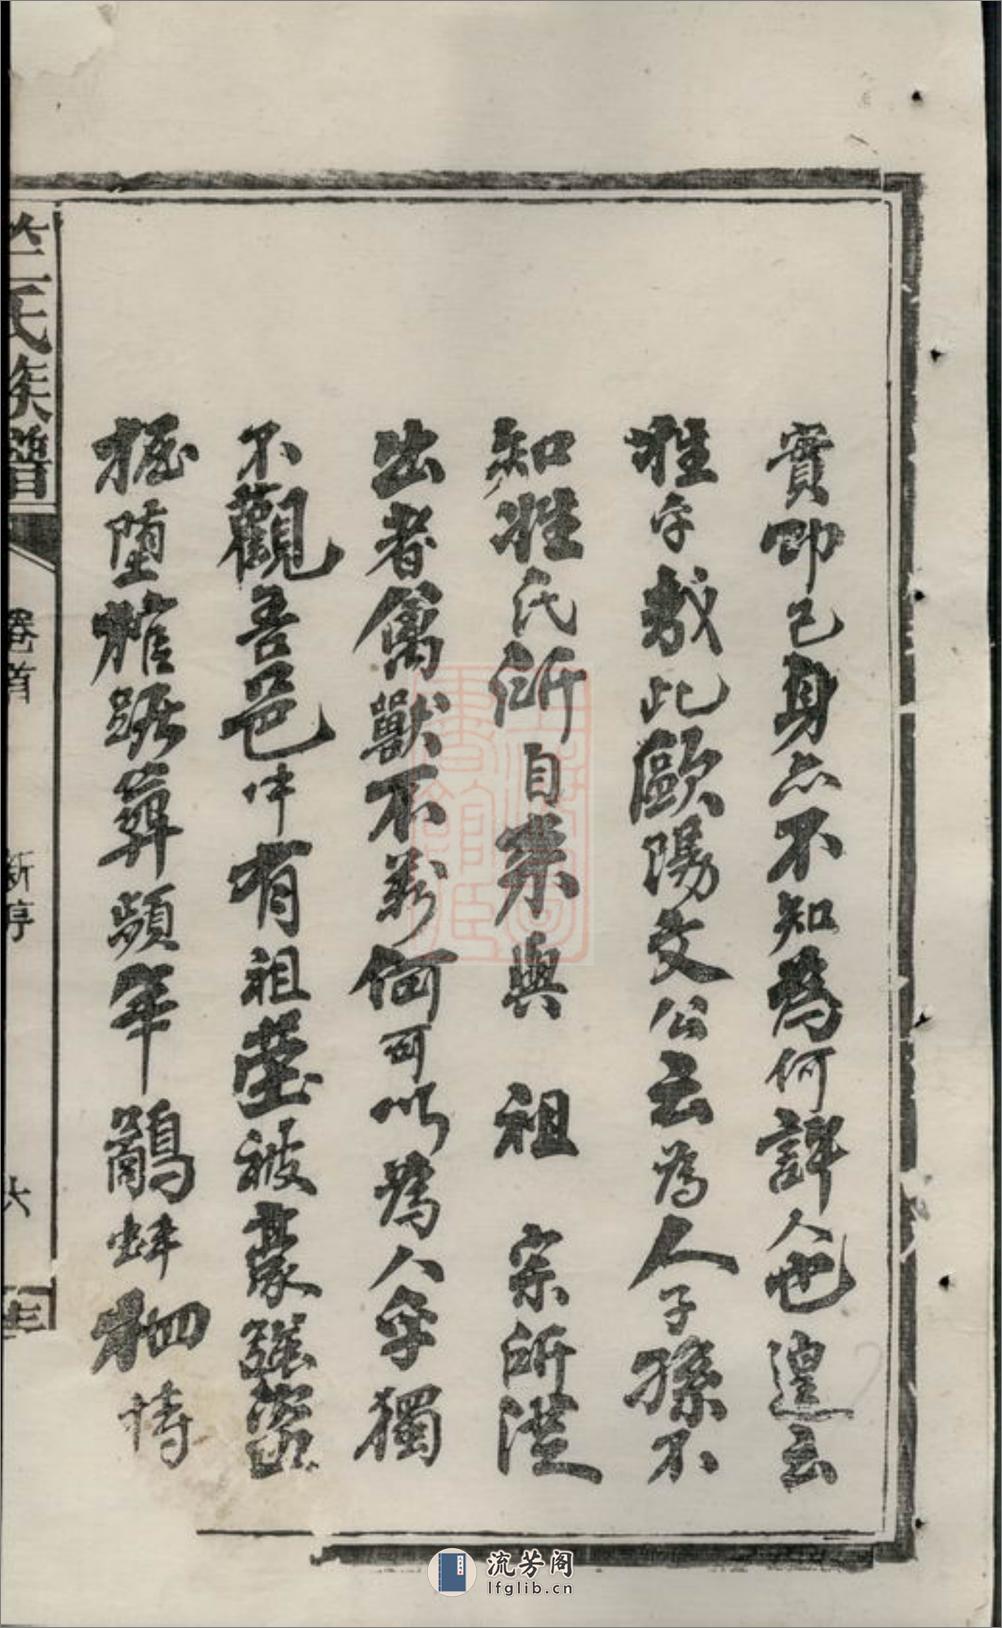 實即己身亦不知為何許人也遑云
姓字哉此歐陽文公云為人子孫不
知姓氏所自来與祖宗所從
出者禽獸不若何可以為人乎獨
不觀吾邑中有祖塋被豪强盜
掘墮棺踞葬頻年鷸蚌相持
氏族譜
卷首
新序
六
流芳阁
lfglib.cn